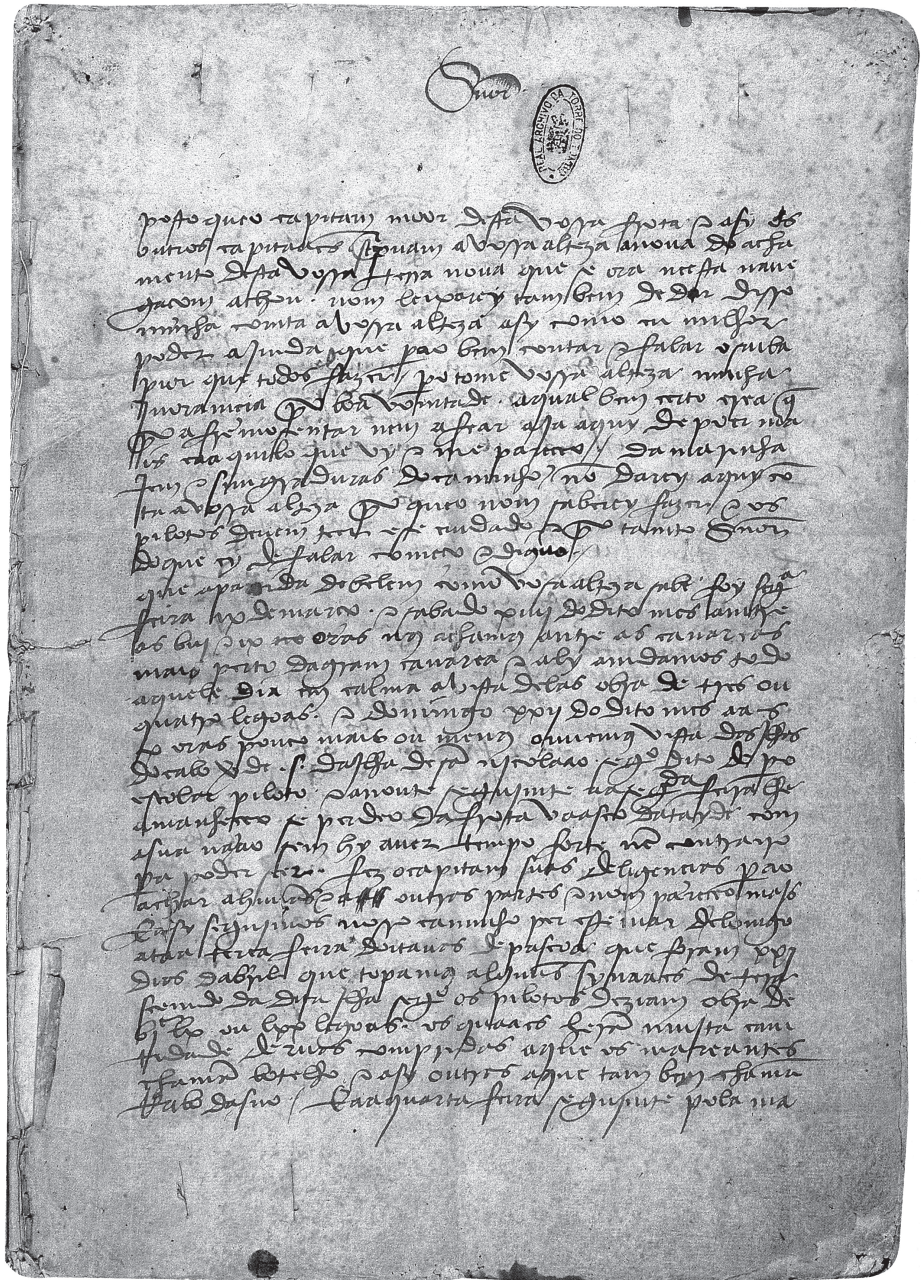 Snor
REAL ARCHIVO DA TORRE DO TOMBO
posto queo capitam moor desta vossa frota e asy os
outros capitaães screpuam a vossa alteza anoua do acha
mento desta vossa terra noua que se ora nesta naue
gaçom achou. nom leixarey tambem de dar disso
minha comta avossa alteza asy como eu milhor
poder ajmda que pera obem contar e falar osaiba
pior que todos fazer / pero tome vossa alteza minha
jnoramçia por boa vomtade. aqual bem çerto crea q̃
por afremosentar nem afear aja aquy de poer ma
is caaquilo que vy e me pareçeo / da marinha
jem e simgraduras do caminho nõ darey aquy cõ
ta avossa alteza por queo nom saberey fazer e os
pilotos deuem teer ese cuidado e por tanto Snor
do que ey de falar começo e diguo /
que apartida de belem como vosa alteza sabe foy segª
feira ix de março. e sabado xiiij do dito mes amtre
as biij e ix oras nos achamos antre as canareas
mais perto da gram canarea e aly amdamos todo
aquele dia em calma avista delas obra de tres ou
quatro legoas. e domingo xxij do dito mes aas
x oras pouco mais ou menos ouuemos vista das jlhas
do cabo verde .s. da jlha de sã njcolaao segº dito de pº
escolar piloto. e anoute segujmte aa segda feira lhe
amanheçeo se perdeo da frota vaasco datayde com
a sua naao sem hy auer tempo forte nẽ contrairo
pera poder seer. fez ocapitam suas deligençias perao
achar ahuũas e outras partes e nom pareçeo mais
E asy segujmos nosso caminho per este mar delomgo
ataa terça feira doitauas de pascoa que foram xxj
dias dabril que topamos alguũs synaaes de tera
seemdo da dita jlha segº os pilotos deziam obra de
bjc lx ou lxx legoas. os quaaes herã muita cam
tidade deruas compridas aque os mareantes
chamã botelho e asy outras aque tambem chamã
rrabo dasno / E aaquarta feira segujmte pola ma